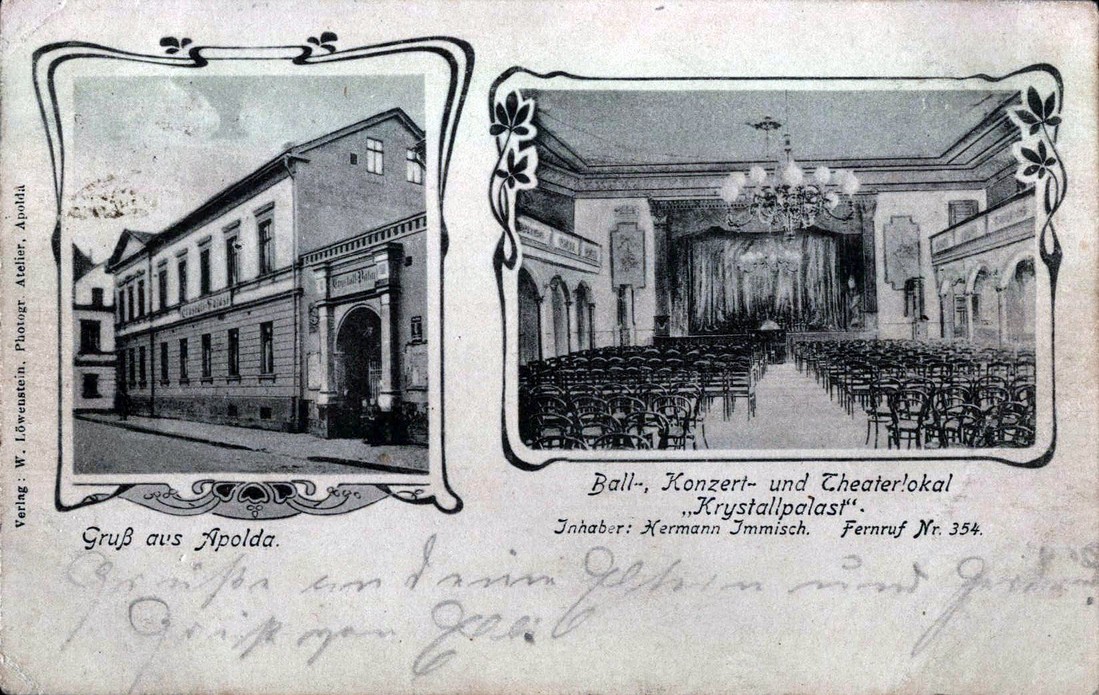 Verlag: W. Löwenstein, Photogr. Atelier, Apolda
Krystall-Palast
Gruß aus Apolda.
Ball-, Konzert- und Theaterlokal
„Krystallpalast“.
Inhaber: Hermann Immisch. Fernruf Nr. 354.
Grüße an deine Eltern und
Gruß von